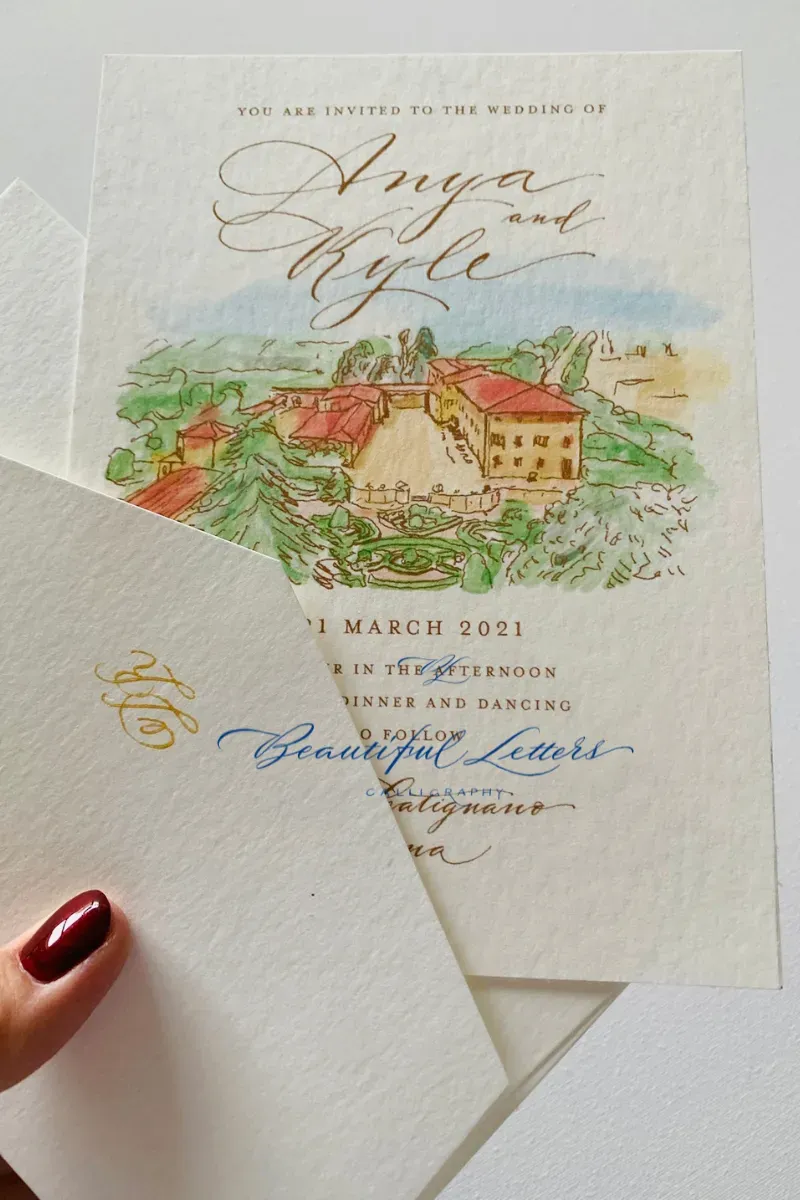 YOU ARE INVITED TO THE WEDDING OF
Anya
and
Kyle
21 MARCH 2021
IN THE AFTERNOON
DINNER AND DANCING
FOLLOW
Beautiful Letters
CALLIGRAPHY